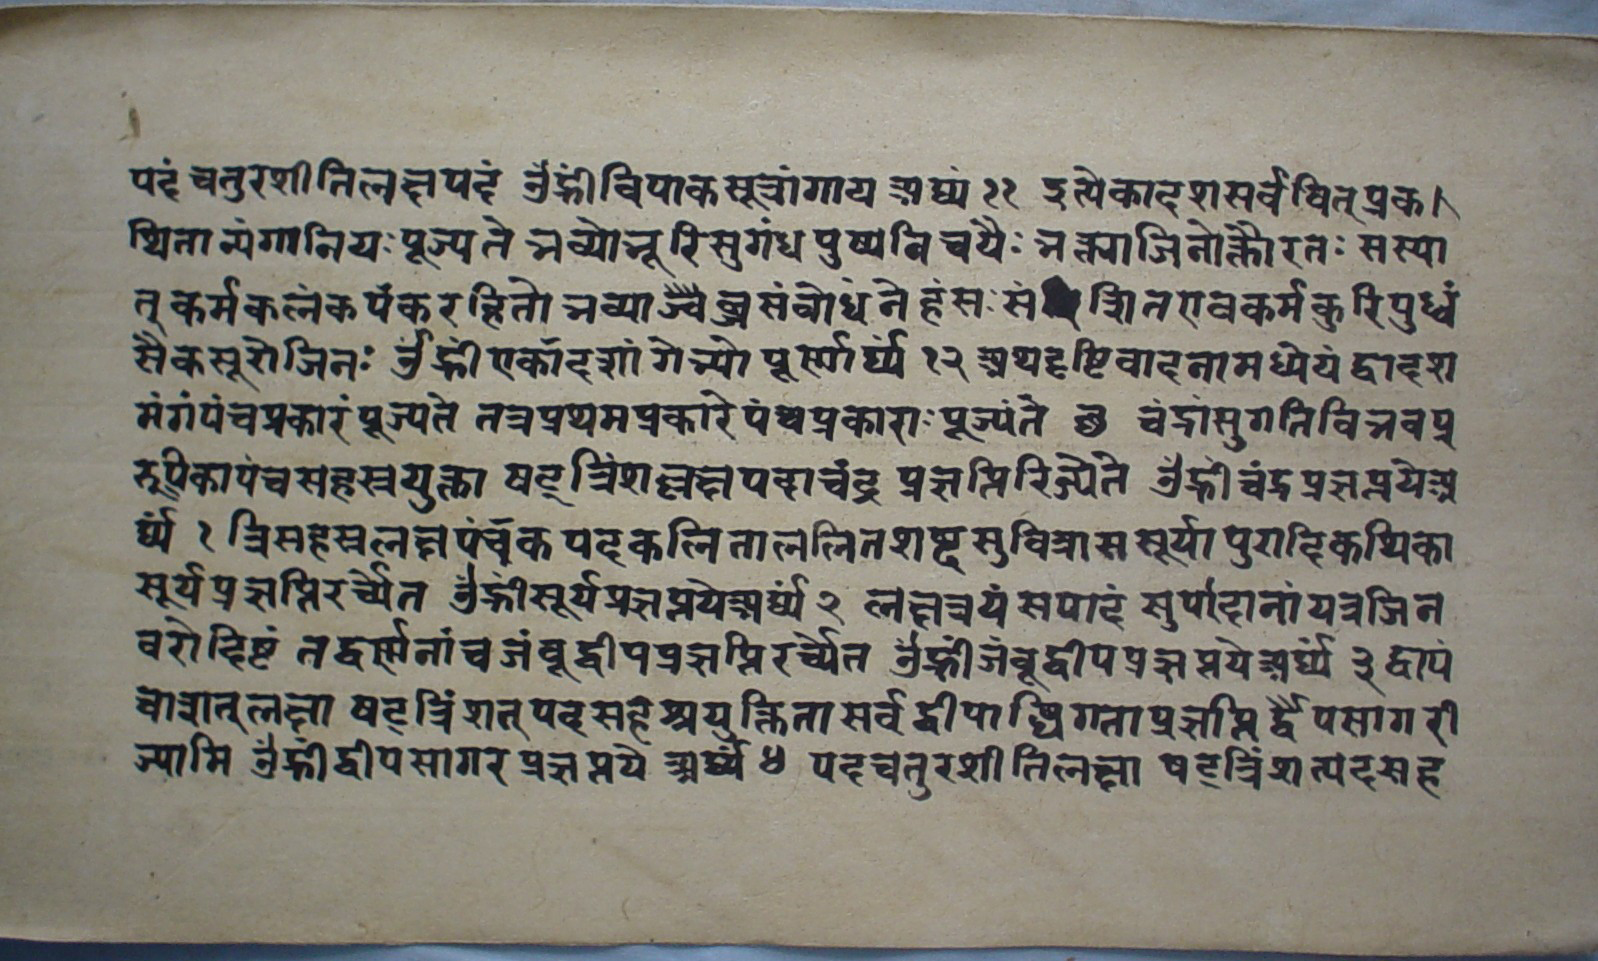 पदं चतुरशीतिलक्षपदं ॐह्रींविपाकसूत्रांगाय अर्घ्यं ११ इत्येकादशसर्ववित्प्रक।
थितान्यंगानियः पूज्यते भव्योभूरिसुगंधपुष्पनिचयैः भक्त्याजिनोक्तौरतः सस्या
त् कर्मकलंकपंकरहितो भव्याज्वैष्प्रसंबोधने हंसः सं श्रितएवकर्मकुरिपुध्वं
सैकसूरोजिनः ॐह्रीं एकादशांगेभ्यो पूर्णार्घ्यं १२ अथदृष्टिवादनामध्येयं द्वादश
मंगंपंचप्रकारं पूज्यते तत्रप्रथमप्रकारे पंचप्रकाराः पूज्यंते छ चंद्रासुगतिविभवप्र
रूपिकापंचसहस्रयुक्ता षट्त्रिंशल्लक्षपदाचंद्र प्रज्ञप्तिरिज्येते ॐह्रींचंद्रप्रज्ञप्तयेअ
र्घ्यं १ त्रिसहस्रलक्षपंचकपदकलिताललितशष्ट्वसुवित्रास सूर्यापुरादिकथिका
सूर्यप्रज्ञप्तिरर्च्येत ॐह्रींसूर्यप्रज्ञप्तयेअर्घ्यं २ लक्षत्रयं सपादं सुपदानां यत्रजिन
वरोद्दिष्टं तद्वर्णनांच जंबूद्वीपप्रज्ञप्तिरर्च्येत ॐह्रींजंबूद्वीपप्रज्ञप्तयेअर्घ्यं ३ द्वापं
चाशत्लक्षा षट्त्रिंशत्पदसहश्रयुक्तिता सर्वद्वीपाब्धिगताप्रज्ञप्तिर्द्वैपसागरी
ज्यामि ॐह्रींद्वीपसागरप्रज्ञप्तये अर्घ्यं ४ पदचतुरशीतिलक्षा षट्त्रिंशत्पदसह